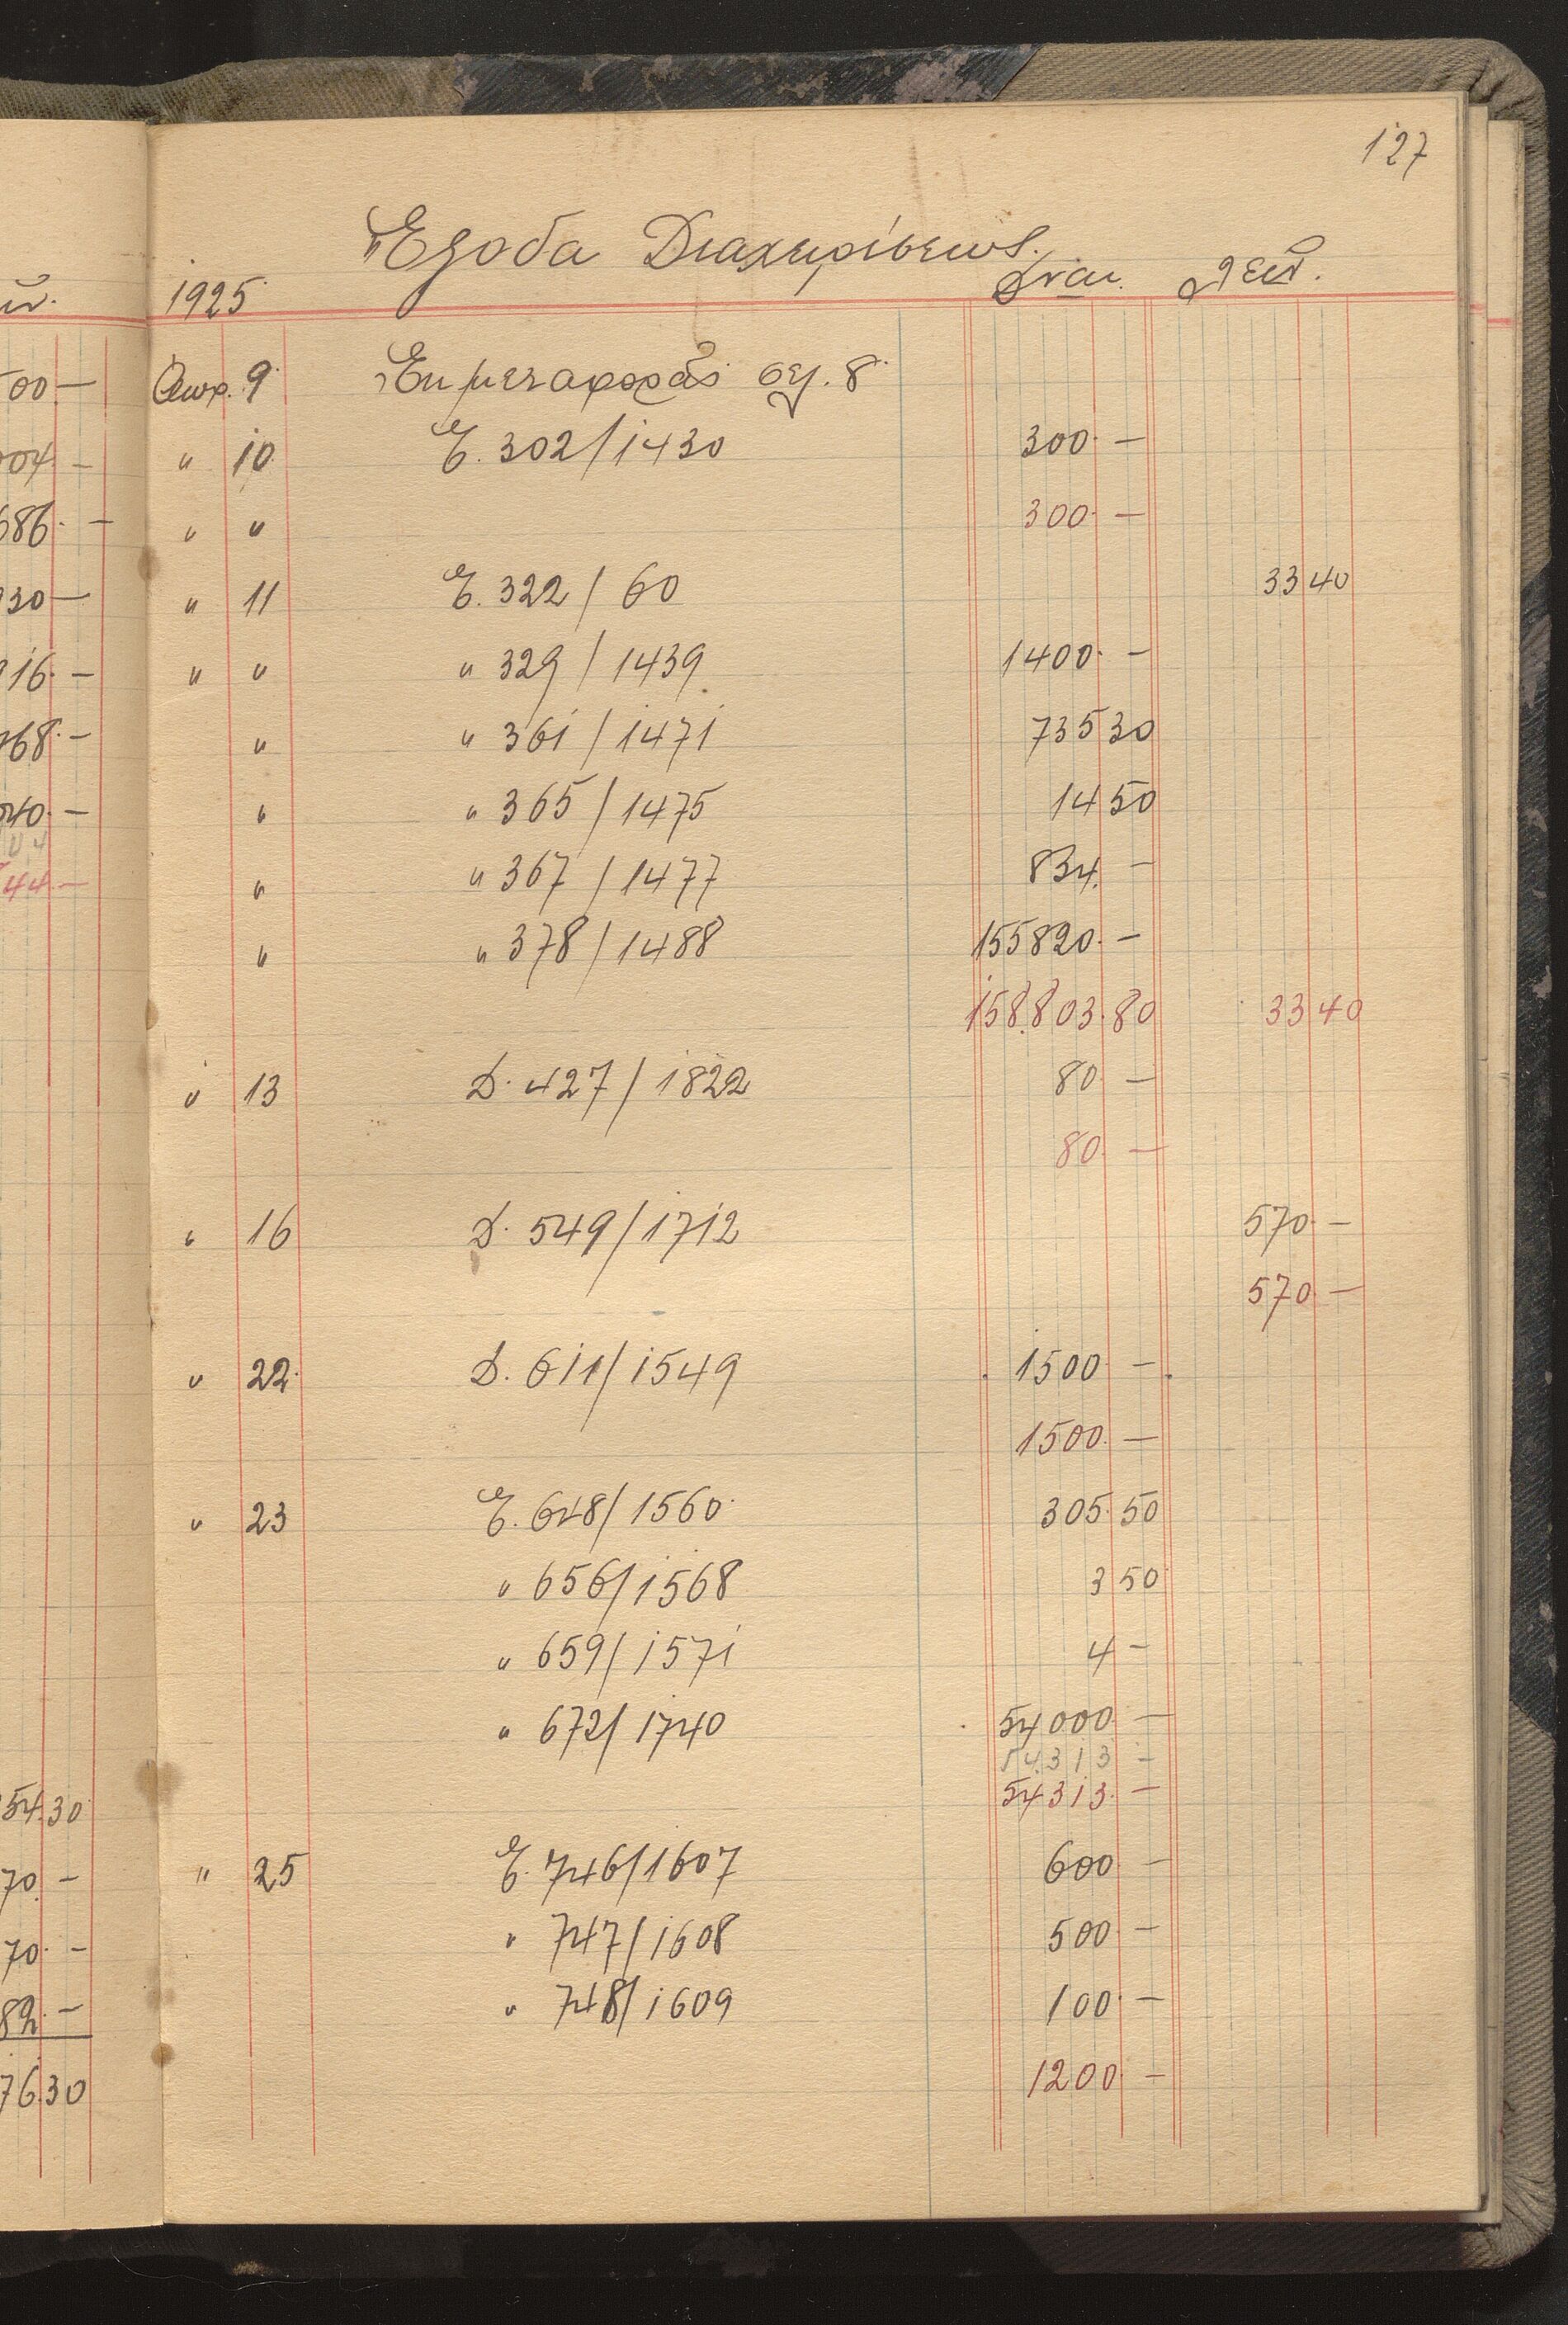 127
Ἔξοδα Διαχειρίσεως.
1925
Απρ. 9 Ἐκ μεταφορᾶς σελ. 8
" 10 Ε. 302/1430 300 —
" " 300 —
" 11 Ε. 322/60 33 40
" " " 329/1439 1400 —
" " 361/1471 735 30
" " 365/1475 14 50
" " 367/1477 834 —
" " 378/1488 155820 —
158.803.80 33 40
" 13 Δ. 427/1822 80 —
80 —
" 16 Δ. 549/1712 570 —
570 —
" 22 Δ. 611/1549 1500 —
1500 —
" 23 Ε. 648/1560 305 50
" 656/1568 3 50
" 659/1571 4 —
" 672/1740 54000 —
54.313 —
54313 —
" 25 Ε. 746/1607 600 —
" 747/1608 500 —
" 748/1609 100 —
1200 —